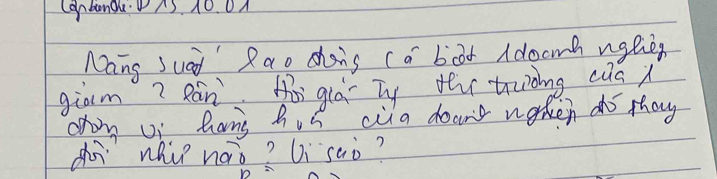 Năng suất lao động cá biệt 1 doanh nghiệp
giảm 2 lần. Hỏi giá trị thị trường của 1
đơn vị hàng hoá của doanh nghiệp đó thay
đổi như nào? Vì sao?